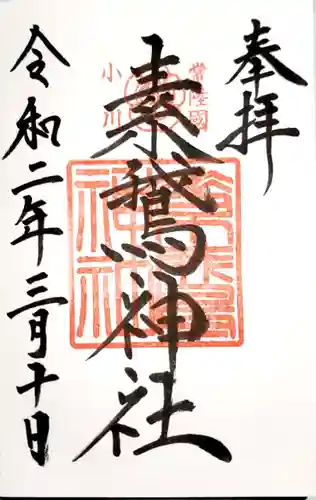 奉拝
常陸國
小川
素鵞神社
令和二年三月十日